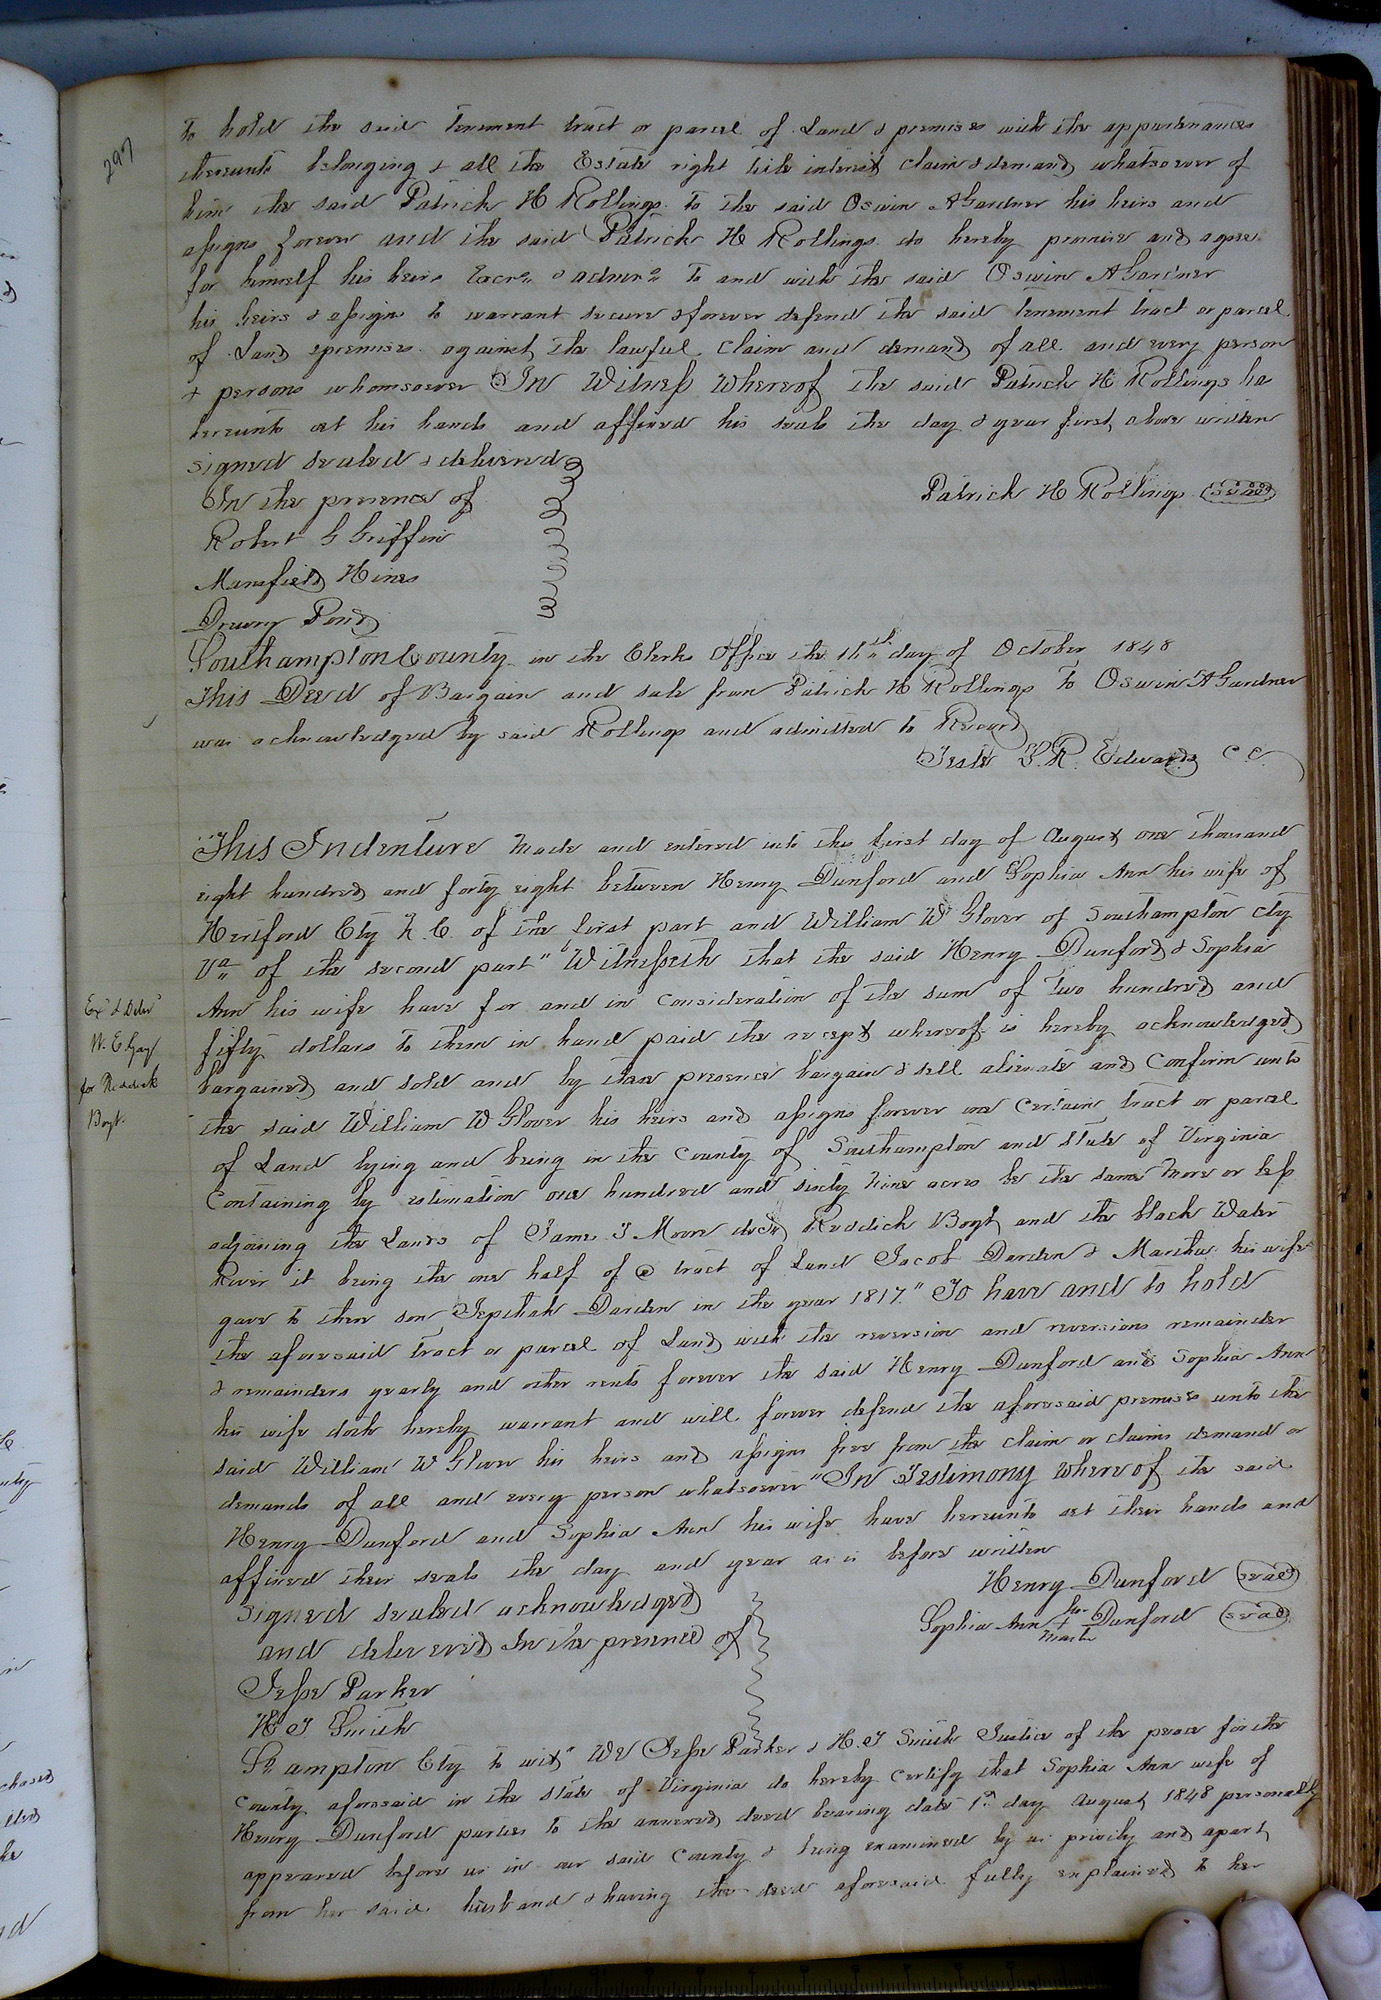 297
to hold the said tenement tract or parcel of Land & premises with the appurtenances
thereunto belonging & all the Estate right title interest claim & demand whatsoever of
him the said Patrick H Rollings to the said Oswin A Gardner his heirs and
assigns forever and the said Patrick H Rollings do hereby promise and agree
for himself his heirs Excrs & admrs to and with the said Oswin A Gardner
his heirs & assigns to warrant secure & forever defend the said tenement tract or parcel
of Land & premises against the lawful claim and demand of all and every person
& persons whomsoever In Witness Whereof the said Patrick H. Rollings ha
hereunto set his hand and affixed his seal the day & year first above written
signed sealed & delivered
In the presence of
Patrick H Rollings seal
Robert G Griffin
Mansfield Hines
Drewry Pond
Southampton County in the Clerks Office the 16th day of October 1848
This Deed of Bargain and sale from Patrick H Rollings to Oswin A Gardner
was acknowledged by said Rollings and admitted to Record
Teste L. R. Edwards C C.
This Indenture made and entered into this first day of August one thousand
eight hundred and forty eight between Henry Dunford and Sophia Ann his wife of
Hertford Cty N. C. of the first part and William W Glover of Southampton cty
Va of the second part" Witnesseth that the said Henry Dunford & Sophia
Ann his wife have for and in consideration of the sum of two hundred and
fifty dollars to them in hand paid the recept whereof is hereby acknowledged
bargained and sold and by these presence bargain & sell alienate and Confirm unto
the said William W Glover his heirs and assigns forever one Certain tract or parcel
of Land lying and being in the County of Southampton and State of Virginia
Containing by estimation one hundred and sixty nine acres be the same more or less
adjoining the Lands of James J Moore decd Reddick Boyt and the black Water
River it being the one half of a tract of Land Jacob Darden & Martha his wife
gave to there son Jepthah Darden in the year 1817." To have and to hold
the aforesaid tract or parcel of Land with the reversion and reversions remainder
& remainders yearly and other rents forever the said Henry Dunford and Sophia Ann
his wife doth hereby warrant and will forever defend the aforesaid premises unto the
said William W Glover his heirs and assigns free from the claim or claims demand or
demands of all and every person whatsoever "In Testimony whereof the said
Henry Dunford and Sophia Ann his wife have hereunto set their hands and
affixed their seals the day and year as is before written
Ex'd & Delv'd
W. E. Gay
for Reddick
Boyt.
Henry Dunford seal
signed sealed acknowledged
Sophia Ann her + mark Dunford seal
and delivered In the presence of
Jesse Parker
H J Smith
So ampton Cty to wit" We Jesse Parker & H. J Smith Justice of the peace for the
County aforesaid in the state of Virginia do hereby certify that Sophia Ann wife of
Henry Dunford parties to the annexed deed bearing date 1st day August 1848 personally
appeared before us in our said County & being examined by us privily and apart
from her said husband & having the deed aforesaid fully explained to her